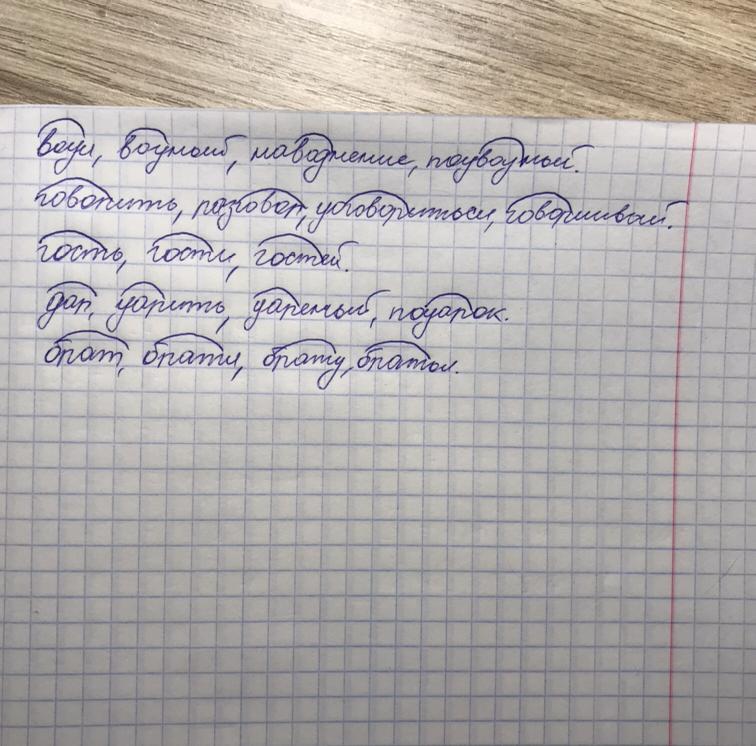 вода, водный, наводнение, подводный.
говорить, разговор, договориться, говорливый.
гость, гости, гостей.
дар, дарить, дареный, подарок.
брат, брати, брату, братья.